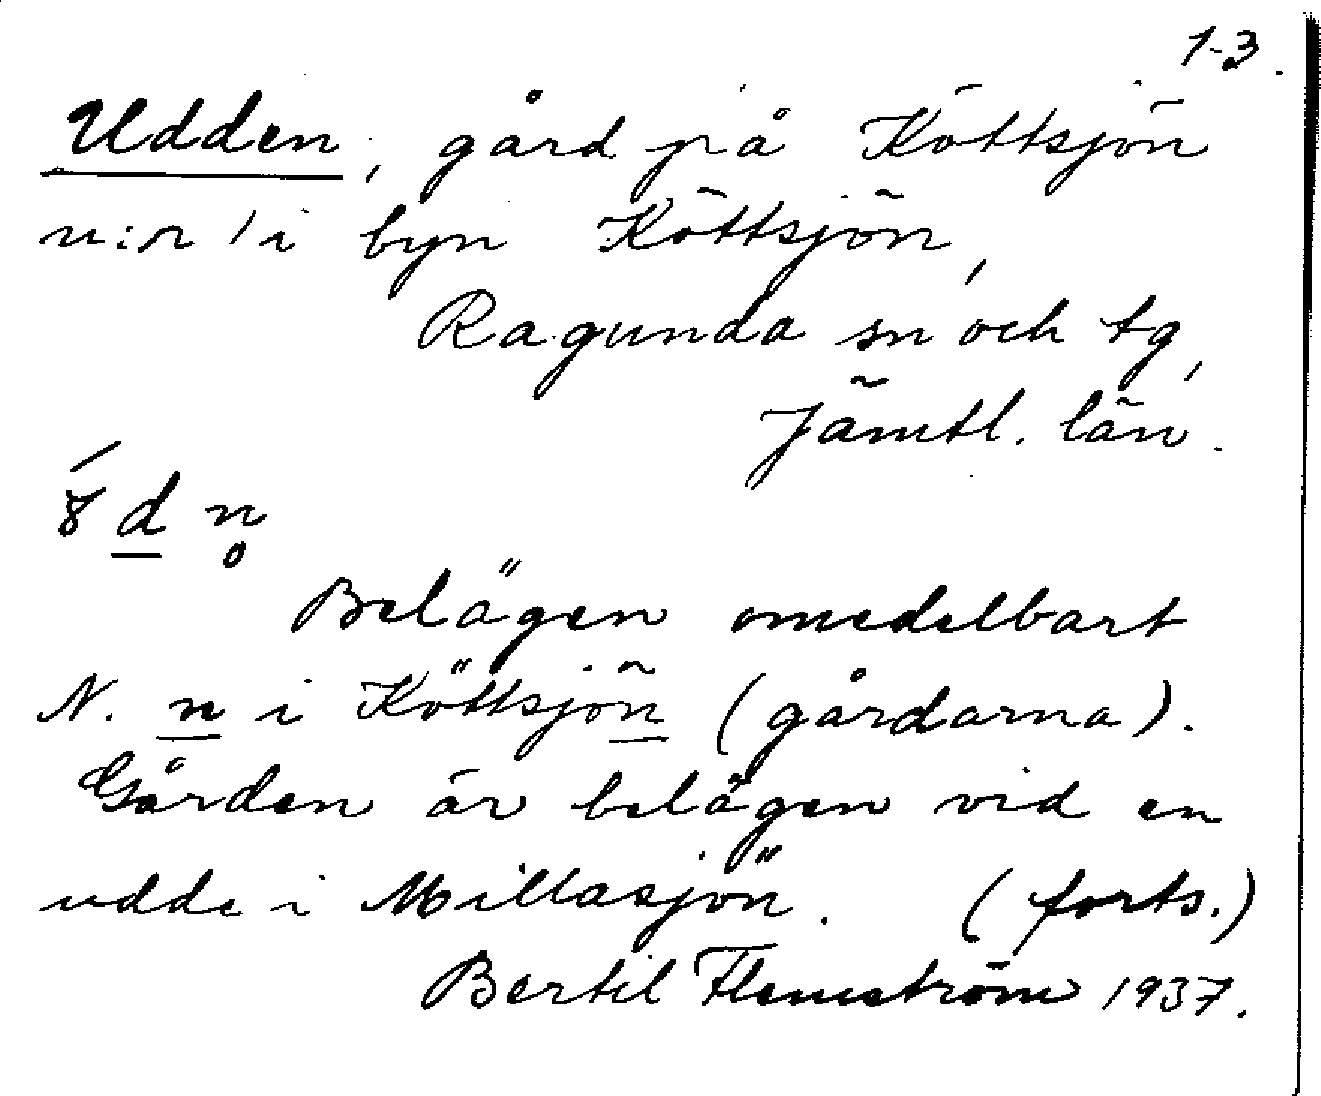 1-3.
Udden, gård på Köttsjön
n:r 1 i byn Köttsjön,
Ragunda sn och tg,
Jämtl. län.
Belägen omedelbart
N. n i Köttsjön (gårdarna).
Gården är belägen vid en
udde i Millasjön. (forts.)
Bertil Flemström 1937.